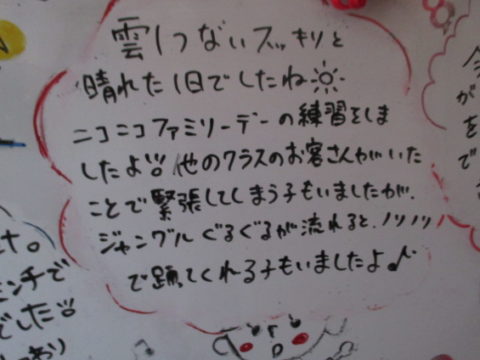 雲1つないスッキリと
晴れた1日でしたね☼
ニコニコファミリーデーの練習をしま
したよ!! 他のクラスのお客さんがいた
ことで緊張してしまう子もいましたが、
ジャングルぐるぐるが流れると、ノリノリ
で踊ってくれる子もいましたよ♪
た。
ミンチで
でした!!
今
が
を
で